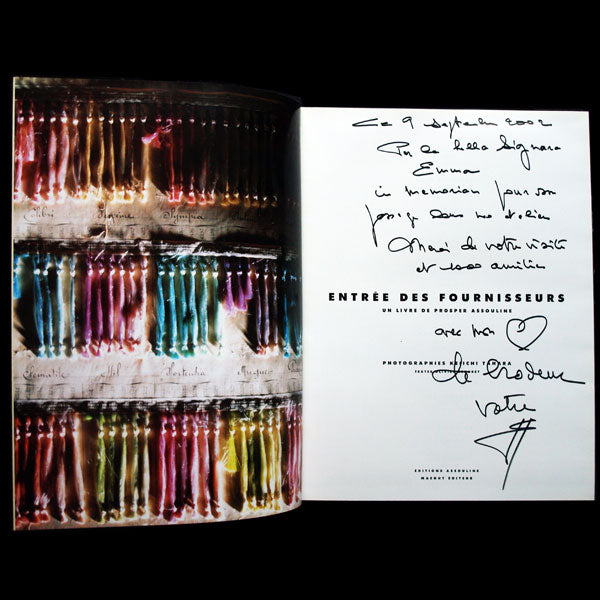 Colibri
Sylvia
Clématite
Nil
Hortensia
Muguet
Ce 9 Septembre 2002
Per la bella Signora
Emma
in memoriam pour son
passage dans nos ateliers
Merci de votre visite
et 1000 amitiés
ENTRÉE DES FOURNISSEURS
UN LIVRE DE PROSPER ASSOULINE
avec mon
PHOTOGRAPHIES KEIICHI TAHARA
le brodeur
votre
ÉDITIONS ASSOULINE
MAEGHT ÉDITEUR